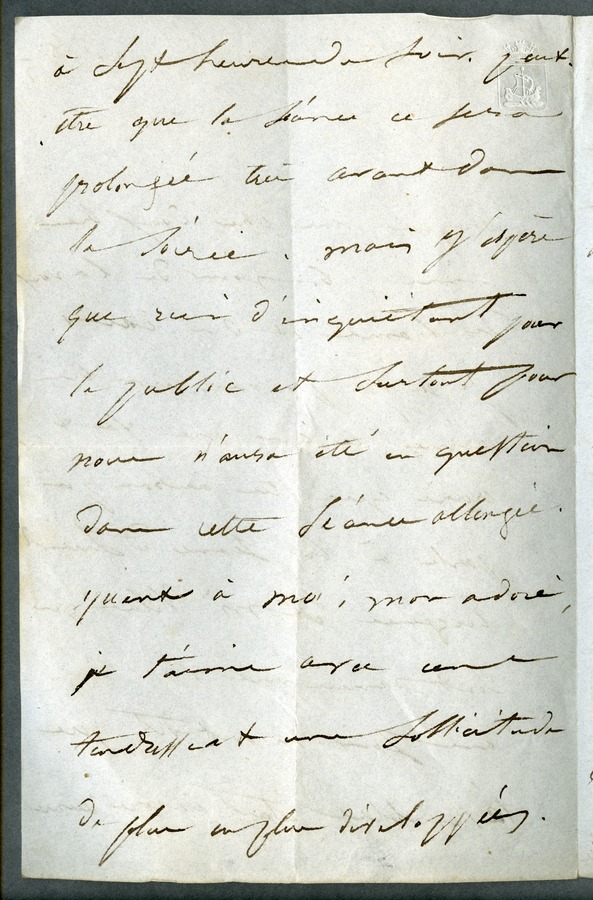 à Sept heures du soir. peut
être que la séance ce sera
prolongée très avant dans
la soirée. mais j'espère
que rien d'inquiétant pour
le public et surtout pour
nous n'aura été en question
dans cette séance allongée.
quant à moi, mon adoré,
je t'aime avec une
tendresse et une sollicitude
de plus en plus développées.